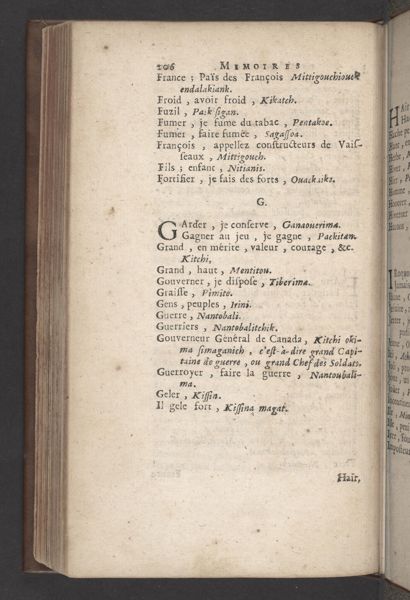 206 MEMOIRES
France ; Païs des François Mittigouchiouek
endalakiank.
Froid , avoir froid , Kikatch.
Fuzil , Paskisigan.
Fumer , je fume du tabac , Pentakoe.
Fumer , faire fumée , Sagassoa.
François , appellez constructeurs de Vais-
seaux , Mittigouch.
Fils ; enfant , Nitianis.
Fortifier , je fais des forts , Ouackaike.
G.
GArder , je conserve , Ganaouerima.
Gagner au jeu , je gagne , Packitan.
Grand , en mérite , valeur , courage , &c.
Kitchi.
Grand , haut , Mentitou.
Gouverner , je dispose , Tiberima.
Graisse , Pimite.
Gens , peuples , Irini.
Guerre , Nantobali.
Guerriers , Nantobalitchik.
Gouverneur Général de Canada , Kitchi oki-
ma simaganich , c'est-à-dire grand Capi-
taine de guerre , ou grand Chef des Soldats.
Guerroyer , faire la guerre , Nantoubali-
ma.
Geler , Kissin.
Il gele fort , Kissina magat.
Haïr,